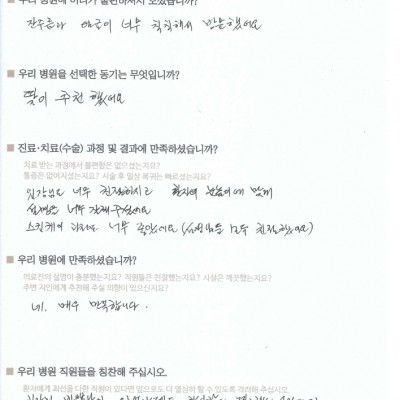 우리 병원에 어디가 불편하셔서 오셨습니까?
잔주름과 얼굴이 너무 칙칙해서 방문했어요
우리 병원을 선택한 동기는 무엇입니까?
딸이 추천했어요
진료·치료(수술) 과정 및 결과에 만족하셨습니까?
치료 받는 과정에서 불편함은 없으셨는지요?
통증은 없어지셨는지요? 시술 후 일상 복귀는 빠르셨는지요?
원장님도 너무 친절하시고 환자의 눈높이에 맞게
설명도 너무 잘해주셨어요
스킨케어 너무 좋았어요 모두 친절했어요)
우리 병원에 만족하셨습니까?
의료진의 설명이 충분했는지요? 직원들은 친절했는지요? 시설은 깨끗했는지요?
주변 지인에게 추천해 주실 의향이 있으신지요?
네, 매우 만족합니다.
우리 병원 직원들을 칭찬해 주십시오.
환자에게 최선을 다한 직원이 있다면 앞으로도 더 열심히 할 수 있도록 격려해 주십시오.